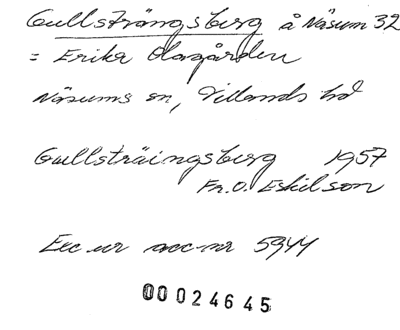 Gullsträngsberg å Näsum 32
= Erika Olagården
Näsums sn, Villands hd
Gullsträingsberg 1957
Fr. O. Eskilson
Exc. ur acc-nr 5944
00024645